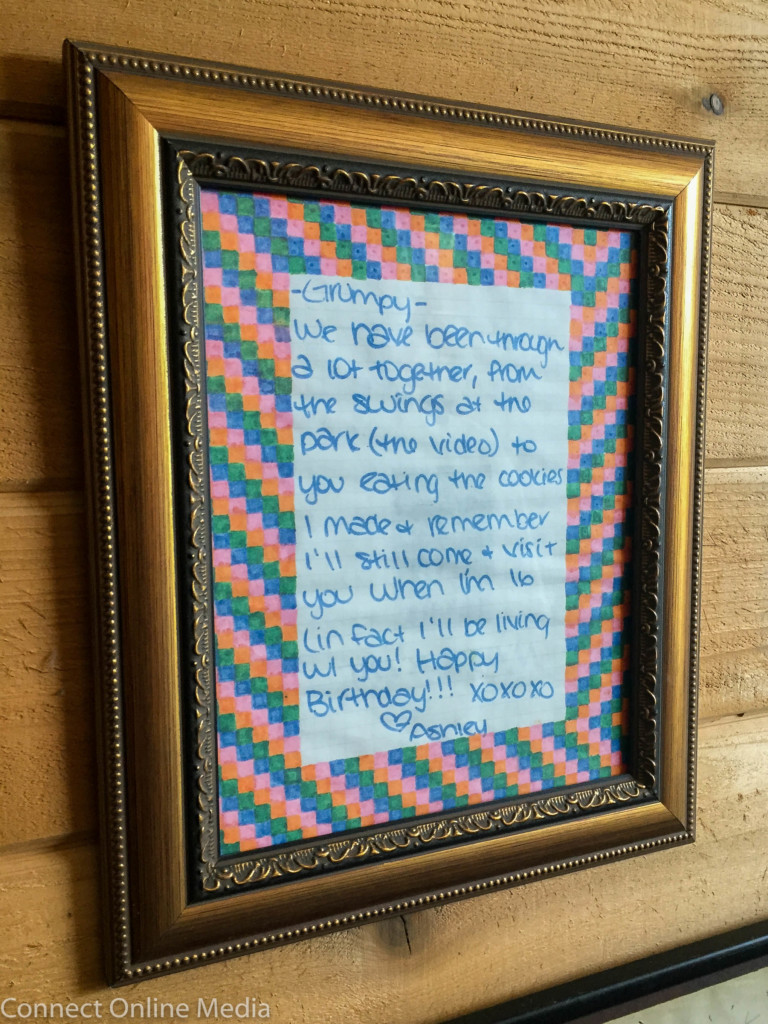 -Grumpy-
We have been through
a lot together, from
the swings at the
park (the video) to
you eating the cookies
I made & remember
I'll still come & visit
you when I'm 16
(in fact I'll be living
w/ you! Happy
Birthday!!! xoxoxo
♡Ashley
Connect Online Media